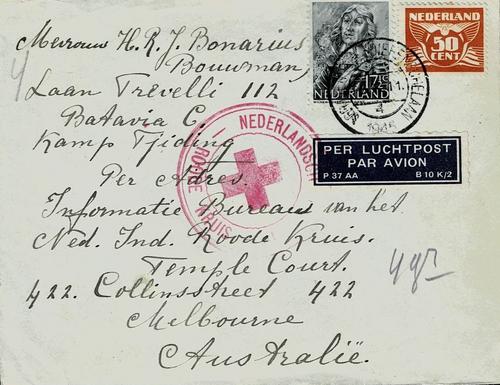 Mevrouw H.R.J. Bonarius
Bouwman,
Laan Trevelli 112
Batavia C.
Kamp Tjideng
Per Adres.
Informatie Bureau van het
Ned. Ind. Roode Kruis.
Temple Court.
422. Collinsstreet 422
Melbourne
Australië.
17½
NEDERLAND
NEDERLAND
50
CENT
1945
NEDERLANDSCH
ROODE KRUIS
PER LUCHTPOST
PAR AVION
P 37 AA B 10 K/2
4gr